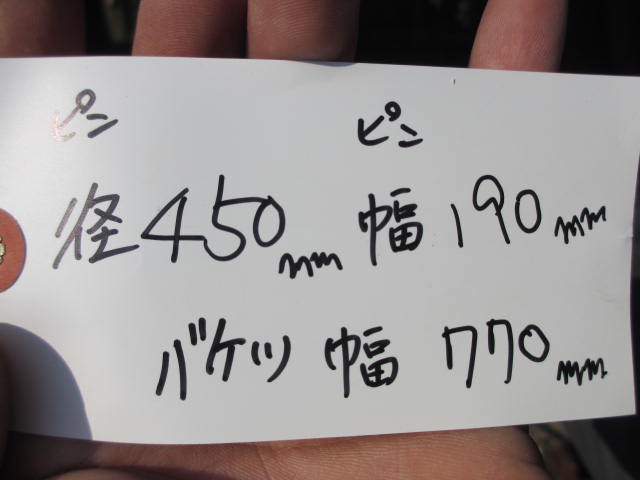 ピン ピン
径450mm 幅190mm
バケツ幅 770mm